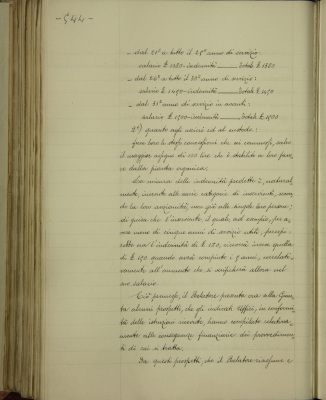 - 544 -
- dal 21° a tutto il 25° anno di servizio:
salario £ 1350 - indennità — Totale £ 1350
- dal 26° a tutto il 30° anno di servizio:
salario £ 1450 - indennità — Totale £ 1450
- dal 31° anno di servizio in avanti:
salario £ 1500 - indennità — Totale £ 1500
2°) quanto agli uscieri ed al custode:
fare loro le stesse concessioni che ai commessi, salvo
il maggior assegno di 100 lire che è stabilito a loro favo-
re dalla pianta organica;
La misura delle indennità predette è, natural-
mente, inerente alle varie categorie di inservienti, secon-
do la loro anzianità, non già alle singole loro persone;
di guisa che l'inserviente il quale, ad esempio, per a-
vere meno di cinque anni di servizio utili, percepi-
rebbe ora l'indennità di £ 150, riceverà invece quella
di £ 150 quando avrà compiuto i 5 anni, correlati-
vamente all'aumento che si verificherà allora nel
suo salario.
Ciò premesso, il Relatore presenta ora alla Giun-
ta alcuni prospetti, che gli indicati Uffici, in conformi-
tà delle istruzioni ricevute, hanno compilato relativa-
mente alle conseguenze finanziarie dei provvedimen-
ti di cui si tratta.
Da questi prospetti, che il Relatore riassume e